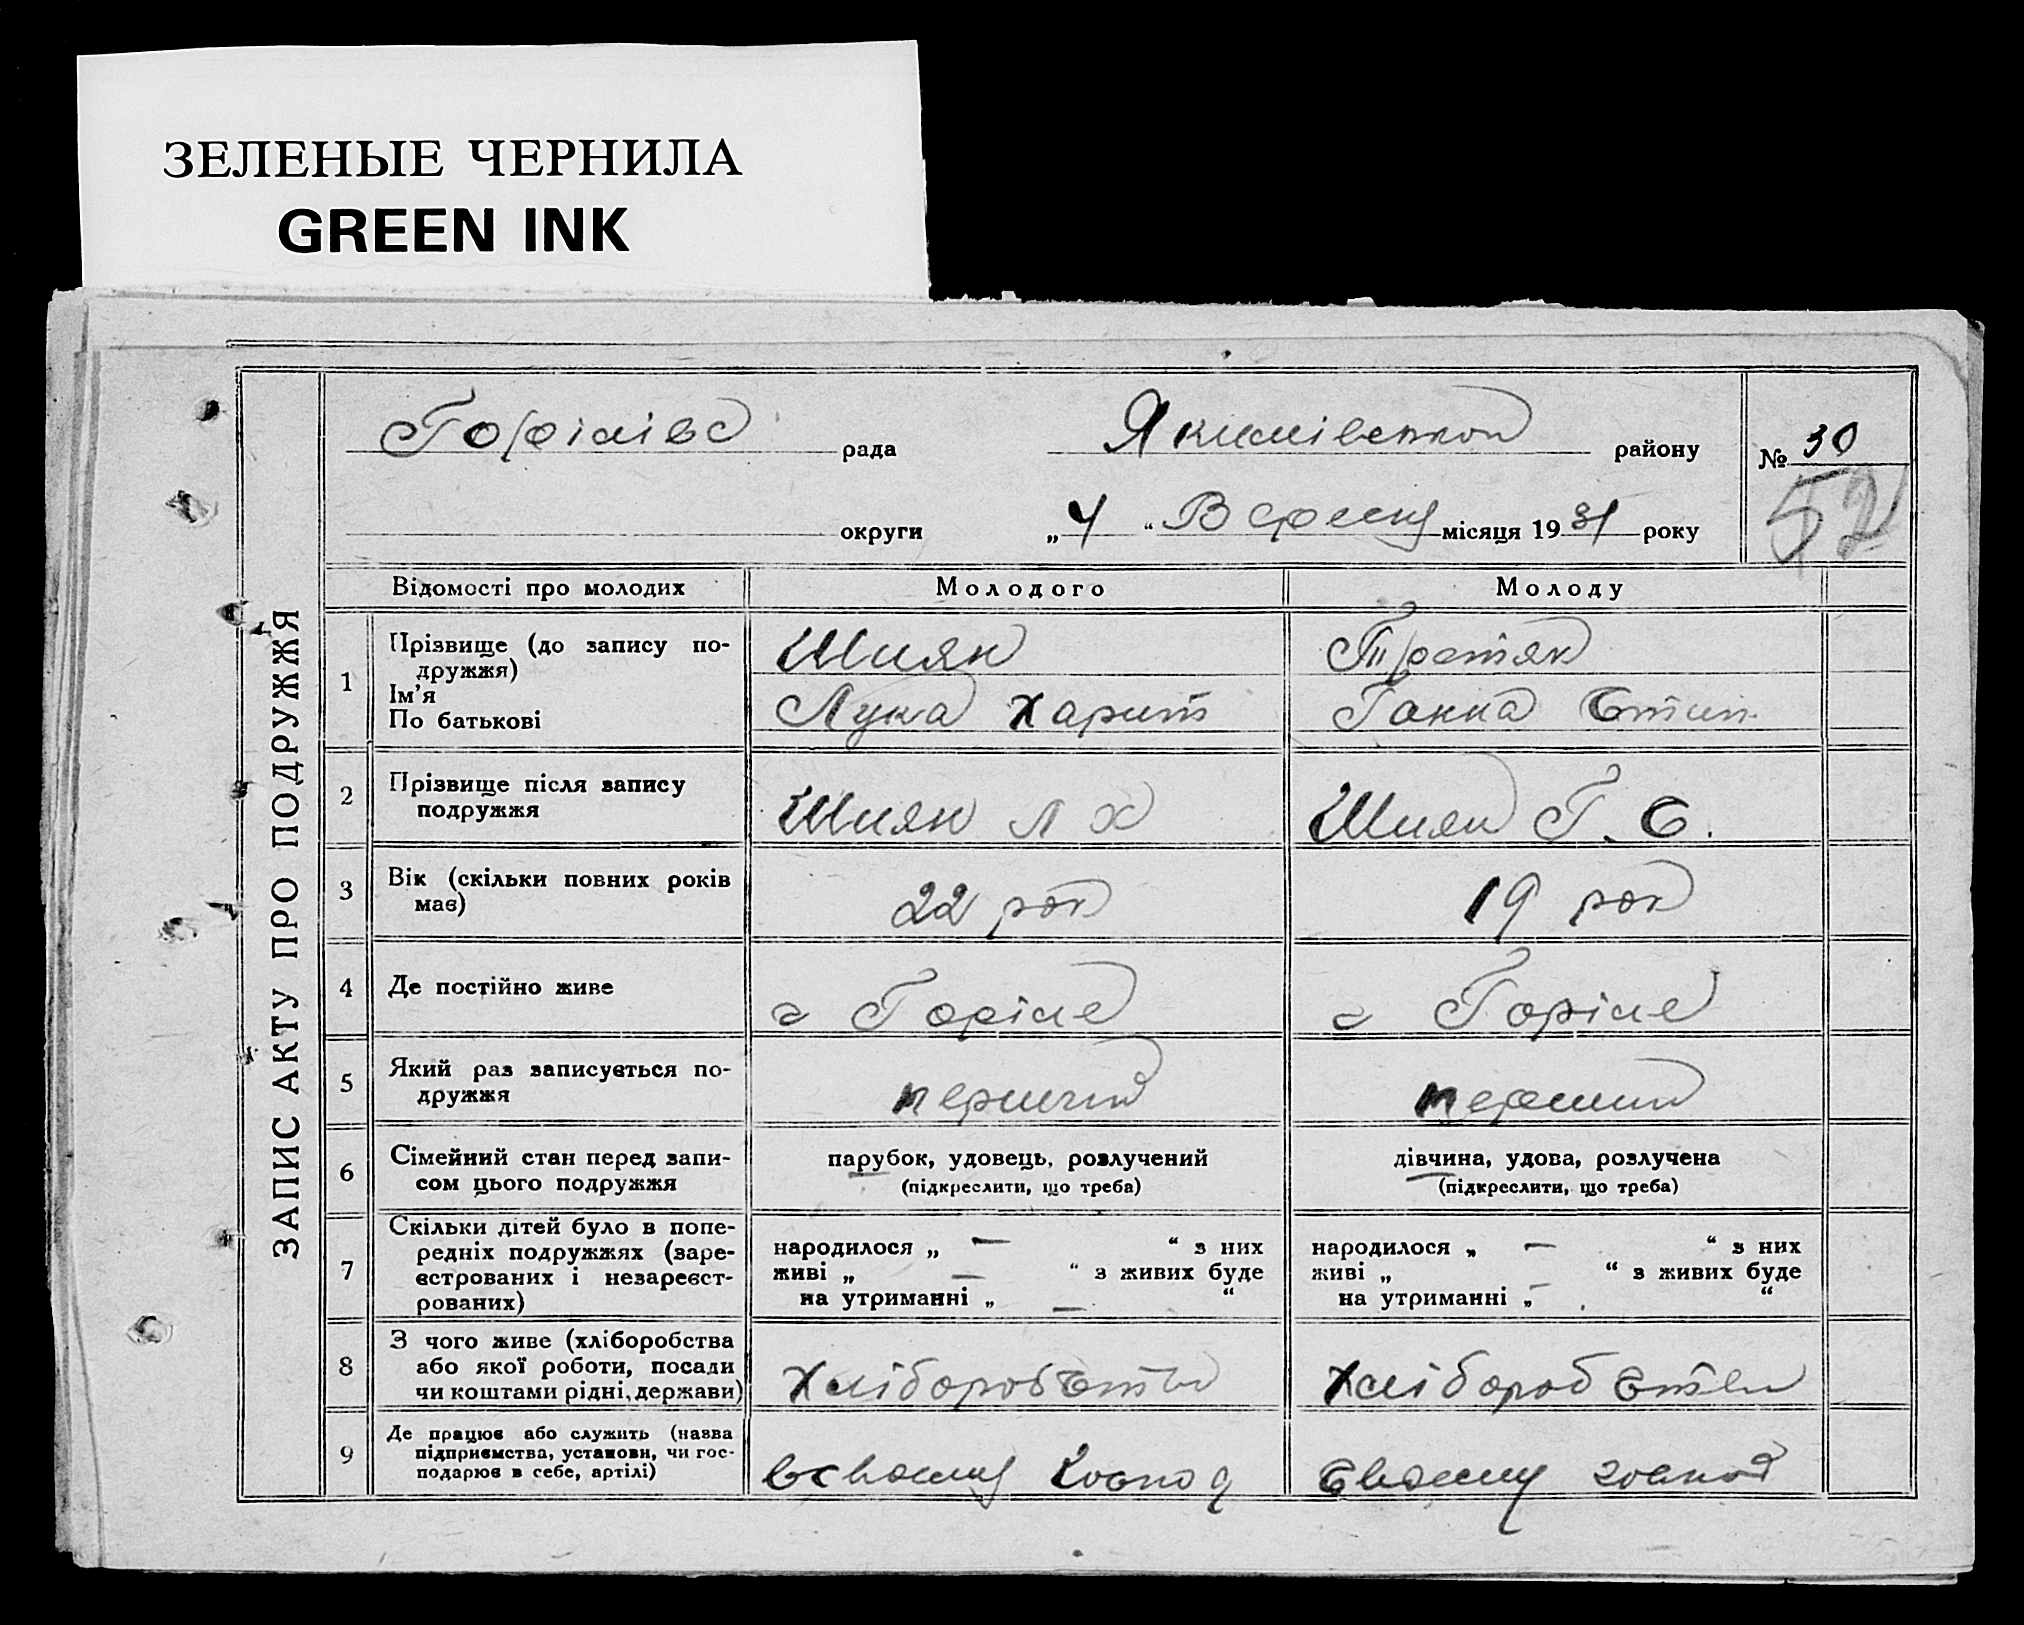 ЗЕЛЕНЫЕ ЧЕРНИЛА
GREEN INK
ЗАПИС АКТУ ПРО ПОДРУЖЖЯ
рада Якимівської району № 30
52
округи „4“ Вересня місяця 1931 року
Відомості про молодих Молодого Молоду
1 Прізвище (до запису по-
дружжя)
Ім'я
По батькові
Шиян Третяк
Лука Харит Ганна Стип.
2 Прізвище після запису
подружжя
Шиян Л Х Шиян Г. С.
3 Вік (скільки повних років
має)
22 рок 19 рок
4 Де постійно живе
с Горіле с Горіле
5 Який раз записується по-
дружжя
перший перший
6 Сімейний стан перед запи-
сом цього подружжя
парубок, удовець, розлучений дівчина, удова, розлучена
(підкреслити, що треба) (підкреслити, що треба)
7 Скільки дітей було в попе-
редніх подружжях (заре-
єстрованих і незареєст-
рованих)
народилося „ — “ з них народилося „ — “ з них
живі „ — “ з живих буде живі „ “ з живих буде
на утриманні „ — “ на утриманні „ — “
8 З чого живе (хліборобства
або якої роботи, посади
чи коштами рідні, держави)
Хліборобства Хліборобства
9 Де працює або служить (назва
підприємства, установи, чи гос-
подарює в себе, артілі)